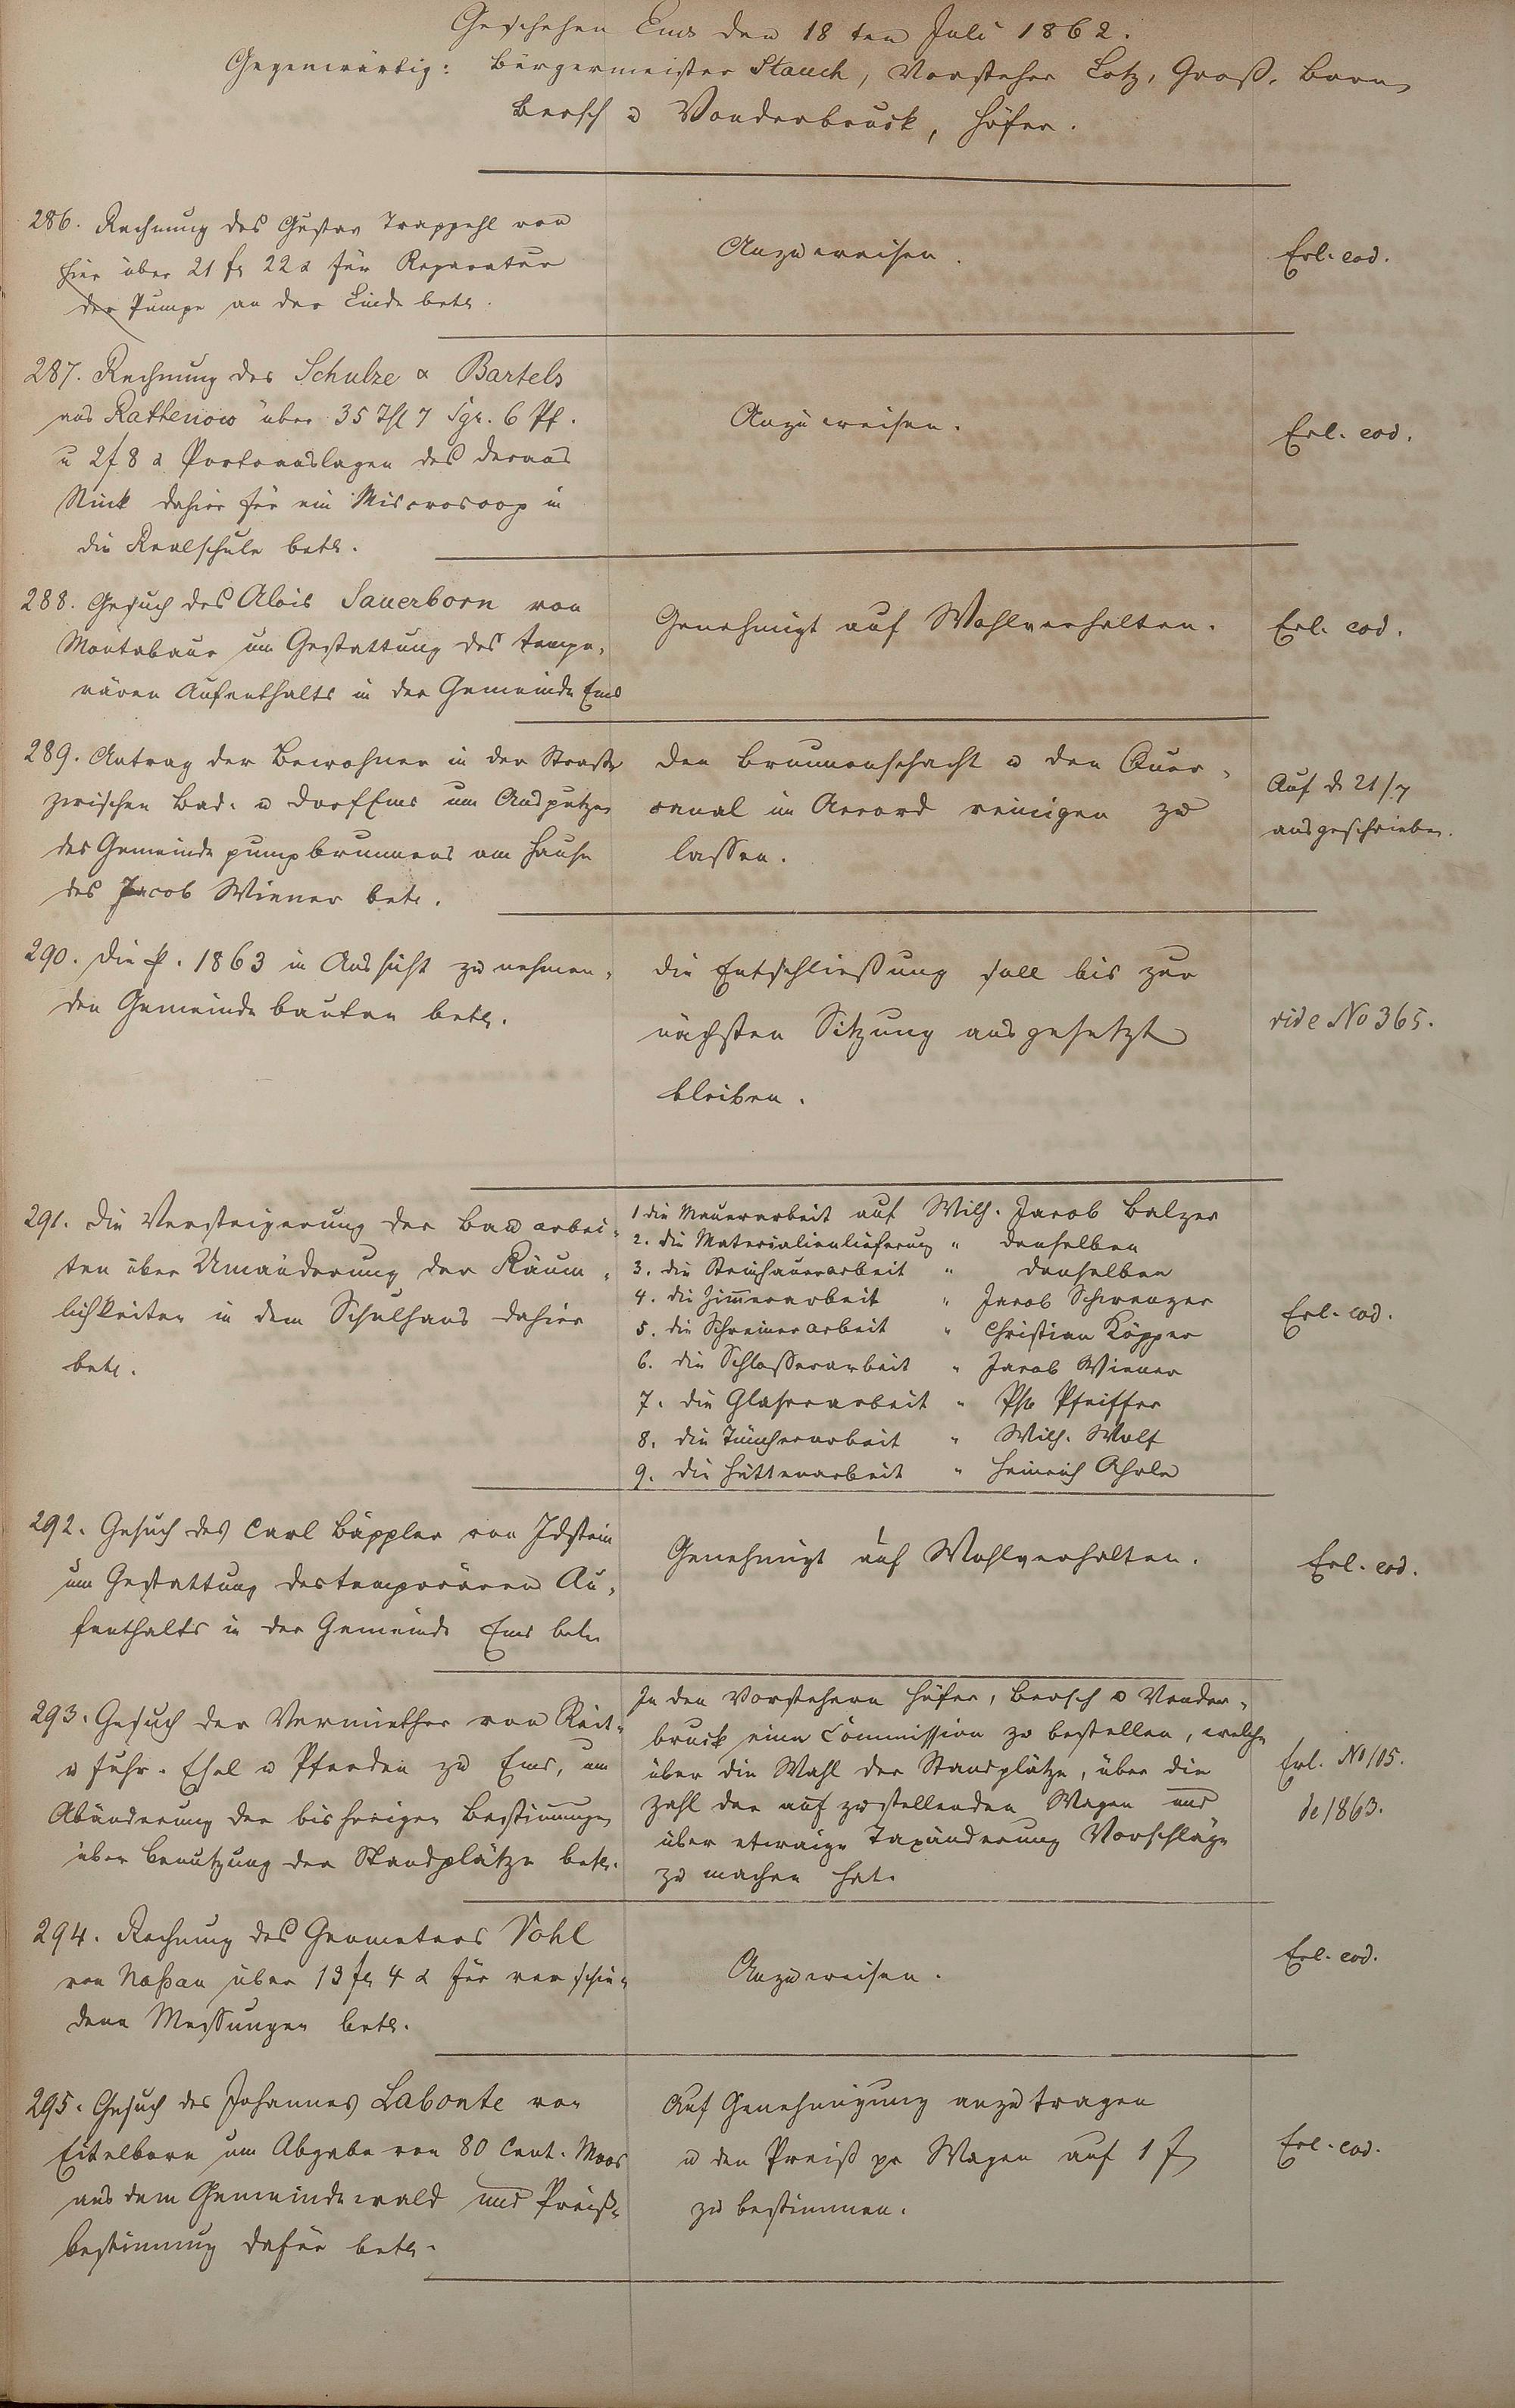 Geschehen Ems den 18ten Juli 1862.
Gegenwärtig: Bürgermeister Stauch, Vorsteher Lotz, Groß, Born
Bersch u Vonderbruck, Höfer.
286. Rechnung des Gustav Trappehl von
hier über 21 fl 22 x für Reparatur
der Pumpe an der Linde betr.
Anzuweisen.
Erl. eod.
287. Rechnung der Schulze & Bartels
aus Rathenow über 35 Thl 7 Sgr. 6 Pf.
u 2 f 8 x Portoauslagen des
Rink dahier für ein Microscop in
die Realschule betr.
Anzuweisen.
Erl. eod.
288. Gesuch des Alois Sauerborn von
Montabaur um Gestattung des tempo-
rären Aufenthalts in der Gemeinde Ems
Genehmigt auf Wohlverhalten.
Erl. eod.
289. Antrag der Bewohner in der Straße
zwischen Bad- u Dorf Ems um Ausputzen
des Gemeindepumpbrunnens am Hause
des Jacob Wiener betr.
Den Brunnenschacht u den Quer-
canal im Accord reinigen zu
lassen.
Auf d. 21/7
ausgeschrieben.
290. Die p. 1863 in Aussicht zu nehmen-
den Gemeindebauten betr.
Die Entschließung soll bis zur
nächsten Sitzung ausgesetzt
bleiben.
vide No 365.
291. Die Versteigerung der Bauarbei-
ten über Umänderung der Räum-
lichkeiten in dem Schulhaus dahier
betr.
1 die Mauerarbeit auf Wilh. Jacob Balzer
2. die Materialienlieferung " denselben
3. die Steinhauerarbeit " denselben
4. die Zimerarbeit " Jacob Schwenzer
5. die Schreinerarbeit " Christian Köpper
6. die Schlosserarbeit " Jacob Wiener
7. die Glaserarbeit " Ph Pfeiffer
8. die Tüncherarbeit " Wilh. Wolf
9. die Hüttenarbeit " Heinrich Ahrle
Erl. eod.
292. Gesuch des Carl Bäppler von Idstein
um Gestattung des temporären Au-
fenthalts in der Gemeinde Ems betr
Genehmigt auf Wohlverhalten.
Erl. eod.
293. Gesuch der Vermiether von Reit-
u Fuhr-Esel u Pferden zu Ems, um
Abänderung der bisherigen Bestimmungen
über Benutzung der Standplätze betr.
In den Vorstehern Höfer, Bersch u Vonder-
bruck eine Commission zu bestellen, welche
über die Wahl der Standplätze, über die
Zahl der aufzustellenden Wagen und
über etwaige Taxänderung Vorschläge
zu machen hat.
Erl. No 105.
de 1863.
294. Rechnung des Geometers Vohl
von Nassau über 13 fl 4 x für verschie-
dene Messungen betr.
Anzuweisen.
Erl. eod.
295. Gesuch des Johannes Labonte von
Eitelborn um Abgabe von 80 Cent. Moos
aus dem Gemeindewald und Preiß-
bestimmung dafür betr.
Auf Genehmigung anzutragen
u den Preiß pr Wagen auf 1 f
zu bestimmen.
Erl. eod.